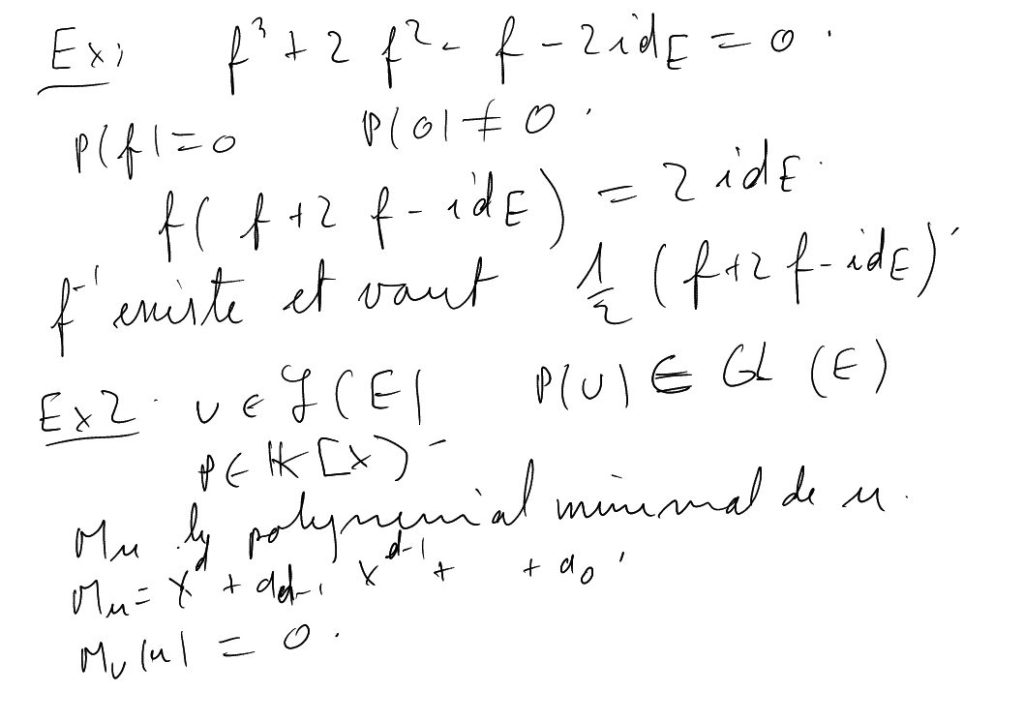 Ex: f³ + 2 f² - f - 2 idE = 0.
P(f) = 0 P(0) ≠ 0.
f( f + 2 f - idE ) = 2 idE.
f⁻¹ existe et vaut 1/2 (f + 2 f - idE).
Ex2. u ∈ L(E) P(u) ∈ GL (E)
P ∈ K[X]
Mu le polynomial minimal de u.
Mu = X^d + a_{d-1} X^{d-1} + + a₀.
Mu(u) = 0.